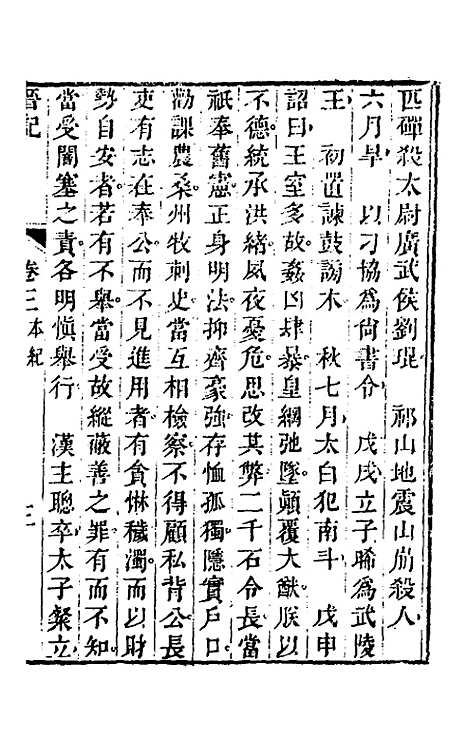 匹磾殺太尉廣武侯劉琨　祁山地震山崩殺人
六月旱　以刁協爲尙書令　戊戌立子晞爲武陵
王　初置諫鼓謗木　秋七月太白犯南斗　戊申
詔曰王室多故姦凶肆暴皇綱弛墜顛覆大猷朕以
不德統承洪緒夙夜憂危思改其弊二千石令長當
祗奉舊憲正身明法抑齊豪強存恤孤獨隱實戶口
勸課農桑州牧刺史當互相檢察不得顧私背公長
吏有志在奉公而不見進用者有貪惏穢濁而以財
勢自安者若有不舉當受故縱蔽善之罪有而不知
當受闇塞之責各明愼舉行　漢主聰卒太子粲立
晉記　卷三本紀　三